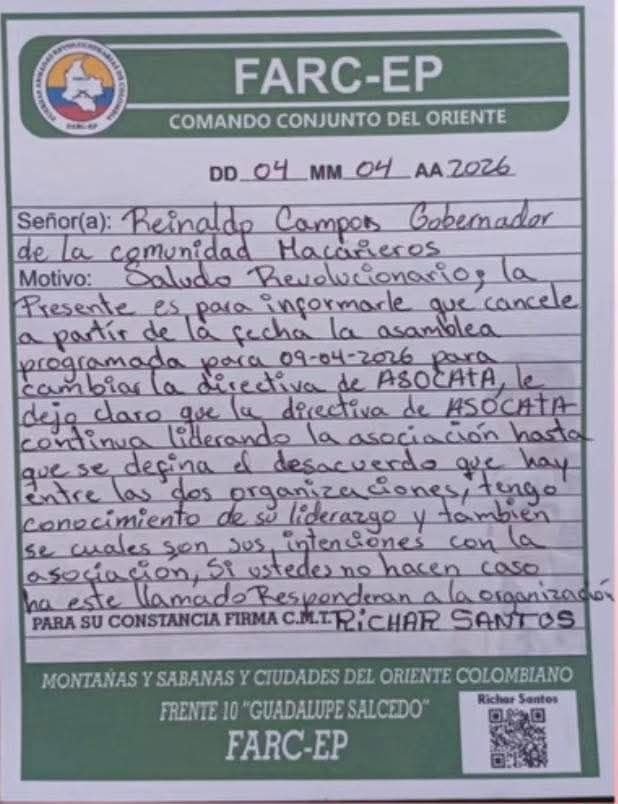 FUERZAS ARMADAS REVOLUCIONARIAS DE COLOMBIA
FARC-EP
FARC-EP
COMANDO CONJUNTO DEL ORIENTE
DD 04 MM 04 AA 2026
Señor(a): Reinaldo Campos Gobernador
de la comunidad Macarieros
Motivo: Saludo Revolucionario, la
Presente es para informarle que cancele
a partir de la fecha la asamblea
programada para 09-04-2026 para
cambiar la directiva de ASOCATA, le
dejo claro que la directiva de ASOCATA
continua liderando la asociación hasta
que se defina el desacuerdo que hay
entre las dos organizaciones, tengo
conocimiento de su liderazgo y también
se cuales son sus intenciones con la
asociación, Si ustedes no hacen caso
ha este llamado Responderan a la organización
PARA SU CONSTANCIA FIRMA C.M.T. RiCHAR SANTOS
MONTAÑAS Y SABANAS Y CIUDADES DEL ORIENTE COLOMBIANO
FRENTE 10 "GUADALUPE SALCEDO"
FARC-EP
Richar Santos